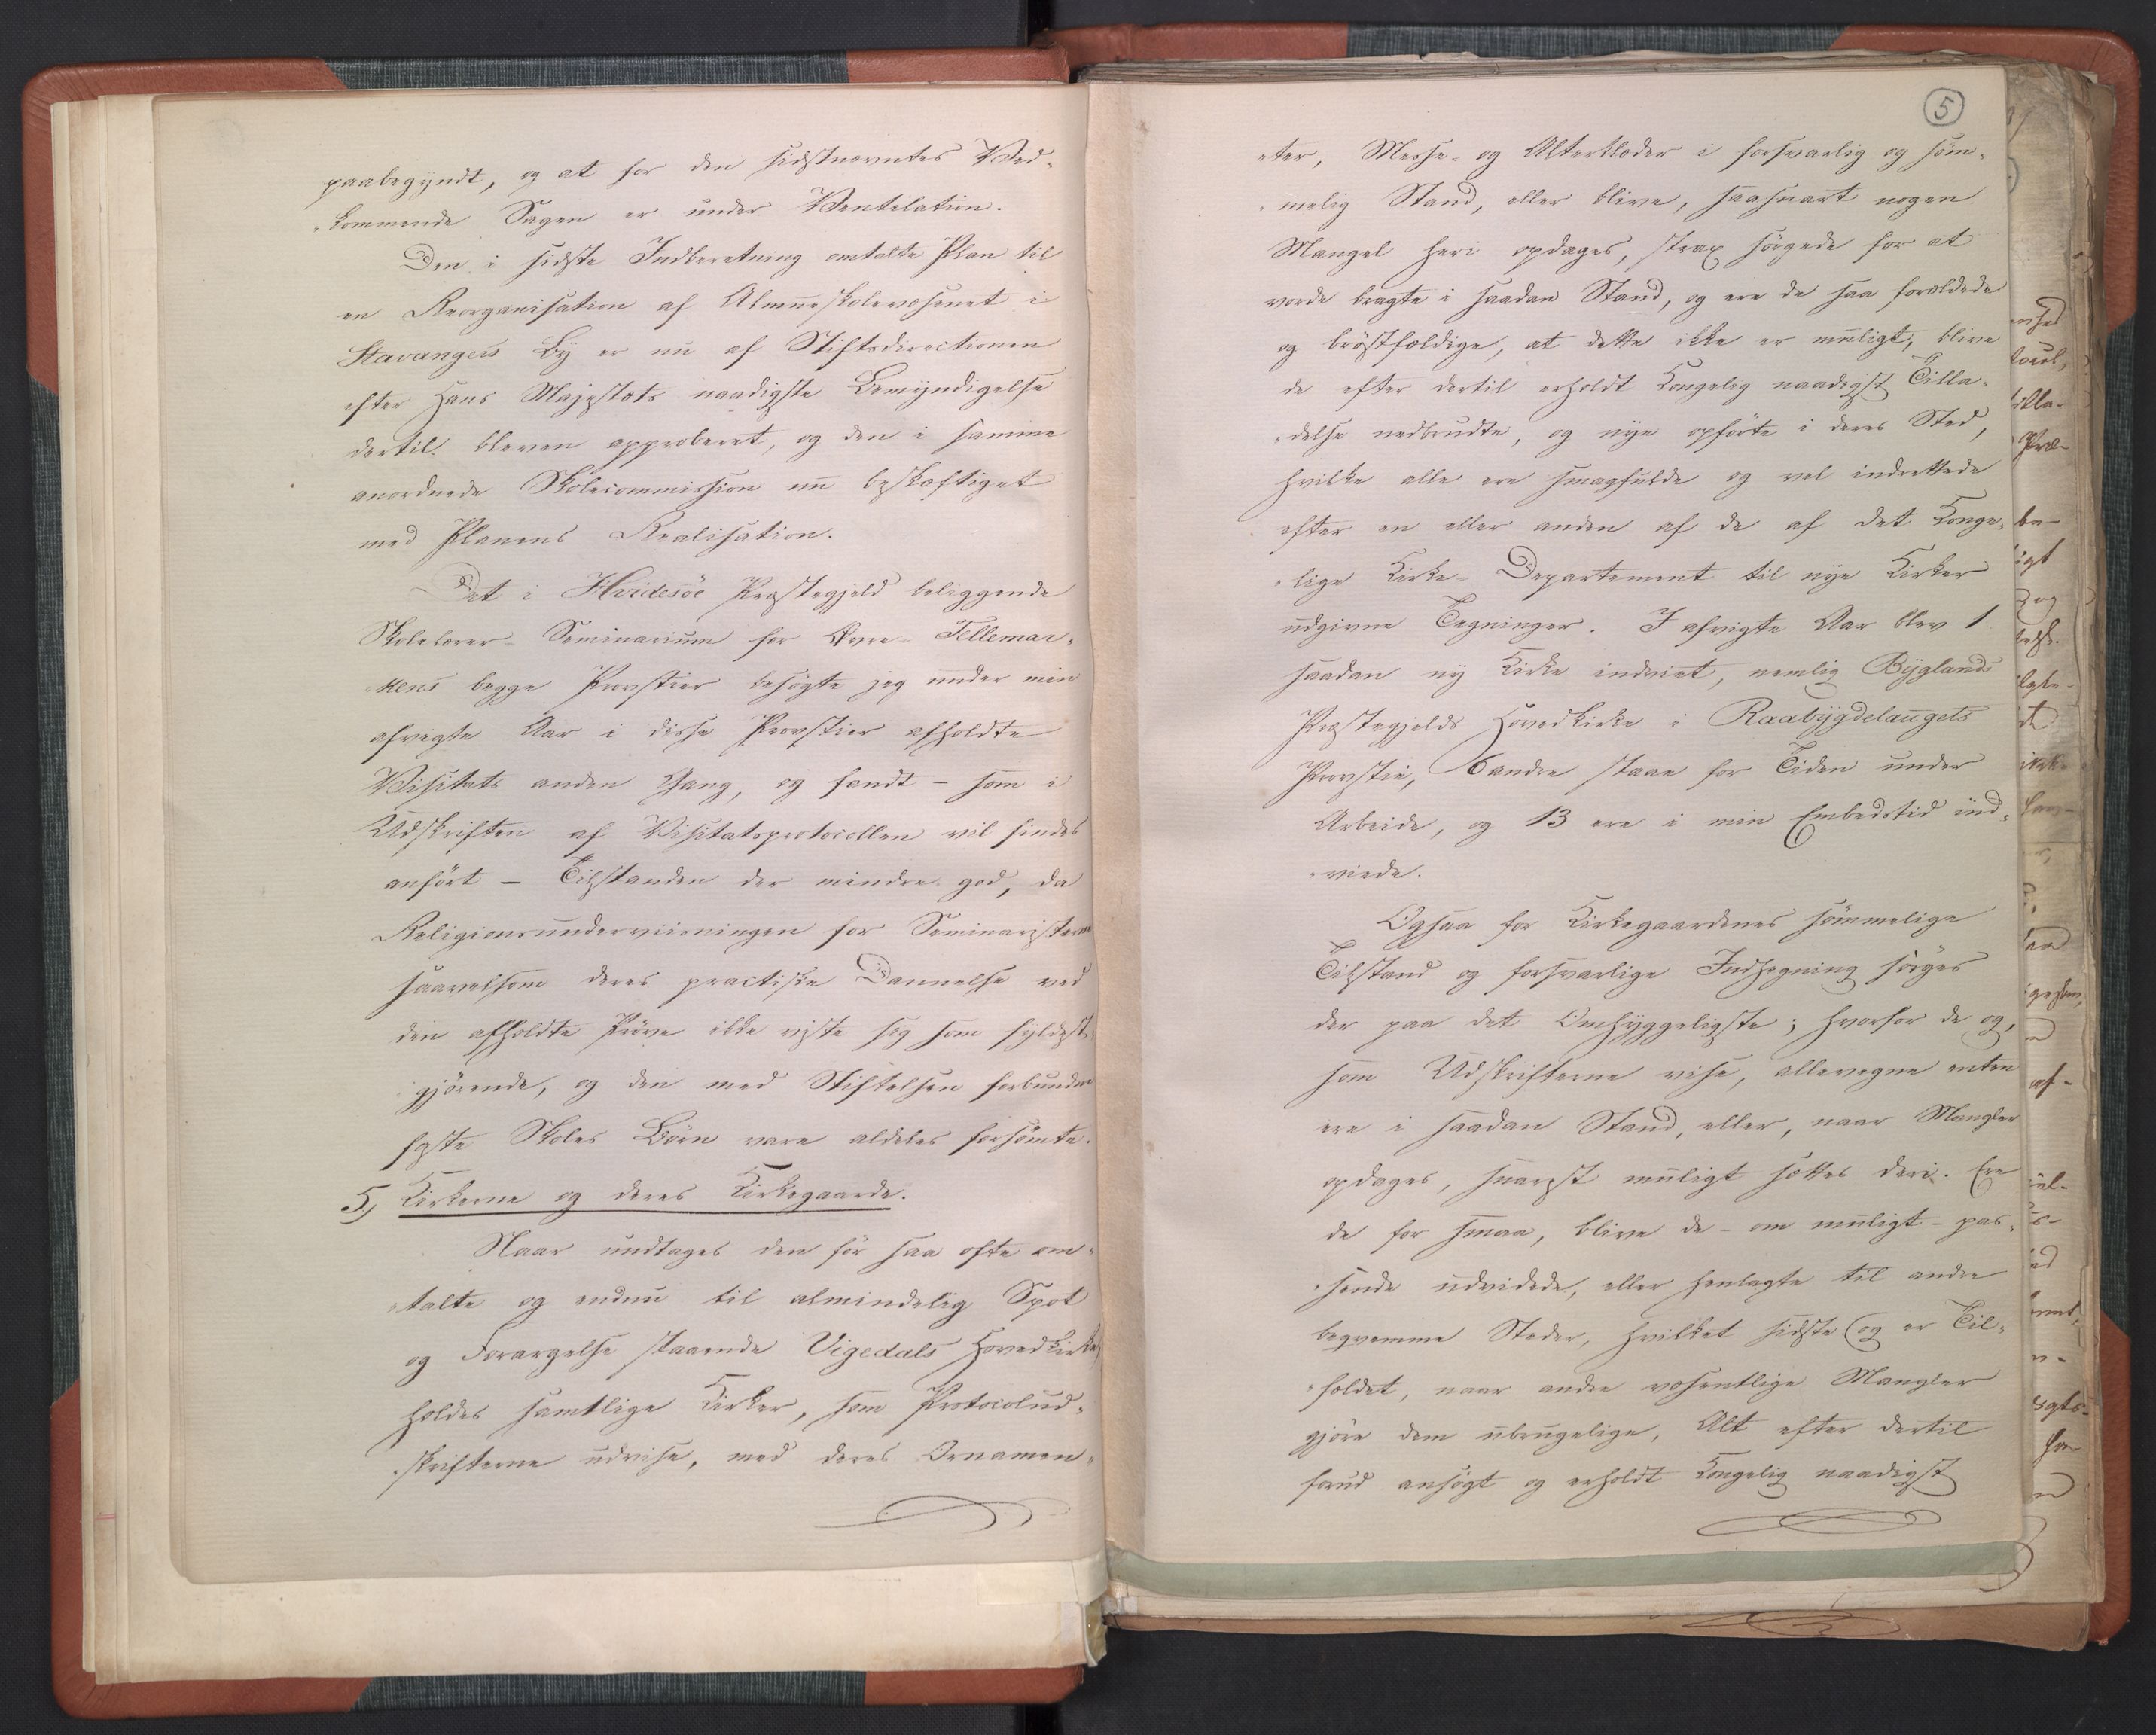 paabegyndt, og at for den sidstnævntes Ved-
kommende Sagen er under Ventilation.
Den i sidste Indberetning omtalte Plan til
en Reorganisation af Almueskolevæsenet i
Stavangers By er nu af Stiftsdirectionen
efter Hans Majestæts naadigste Bemyndigelse
dertil bleven approberet, og den i samme
anordnede Skolecommission nu beskæftiget
med Planens Realisation.
Det i Hvidesöe Præstegjeld beliggende
Skolelærer-Seminarium for Övre-Tellemar-
kens begge Provstier besögte jeg under min
afvigte Aar i disse Provstier afholdte
Visitats anden Gang, og fandt - som i
Udskriften af Visitatsprotocollen vil findes
anfört - Tilstanden der mindre god, da
Religionsunderviisningen for Seminaristerne
saavelsom deres practiske Dannelse ved
den afholdte Pröve ikke viste sig som fyldest-
gjörende, og den med Stiftelsen forbundne
faste Skoles Börn vare aldeles forsömte.
5, Kirkerne og deres Kirkegaarde.
Naar undtages den för saa ofte om-
talte og endnu til almindelig Spot
og Forargelse staaende Vigedals Hovedkirke,
holdes samtlige Kirker, som Protocolud-
skrifterne udvise, med deres Ornamen-
5
ter, Messe- og Alterklæder i forsvarlig og söm-
melig Stand, eller blive, saasnart nogen
Mangel heri opdages, strax sörgede for at
vorde bragte i saadan Stand, og ere de saa forældede
og bröstfældige, at dette ikke er muligt, blive
de efter dertil erholdt Kongelig naadigst Tilla-
delse nedbrudte, og nye opförte i deres Sted,
hvilke alle ere smagfulde og vel indrettede
efter en eller anden af de af det Konge-
lige Kirke-Departement til nye Kirker
udgivne Tegninger. I afvigte Aar blev 1
saadan ny Kirke indviet, nemlig Byglands
Præstegjelds Hovedkirke i Raabygdelaugets
Provstie, 6 andre staae for Tiden under
Arbeide, og 13 ere i min Embedstid ind-
viede.
Ogsaa for Kirkegaardenes sömmelige
Tilstand og forsvarlige Indhegning sörges
der paa det Omhyggeligste; hvorfor de og,
som Udskrifterne vise, allevegne enten
ere i saadan Stand, eller, naar Mangler
opdages, snarest muligt sættes deri. Ere
de for smaa, blive de - om muligt - pas-
sende udvidede, eller henlagte til andre
beqvemme Steder, hvilket sidste og er Til-
fældet, naar andre væsentlige Mangler
gjöre dem ubrugelige, Alt efter dertil
forud ansögt og erholdt Kongelig naadigst